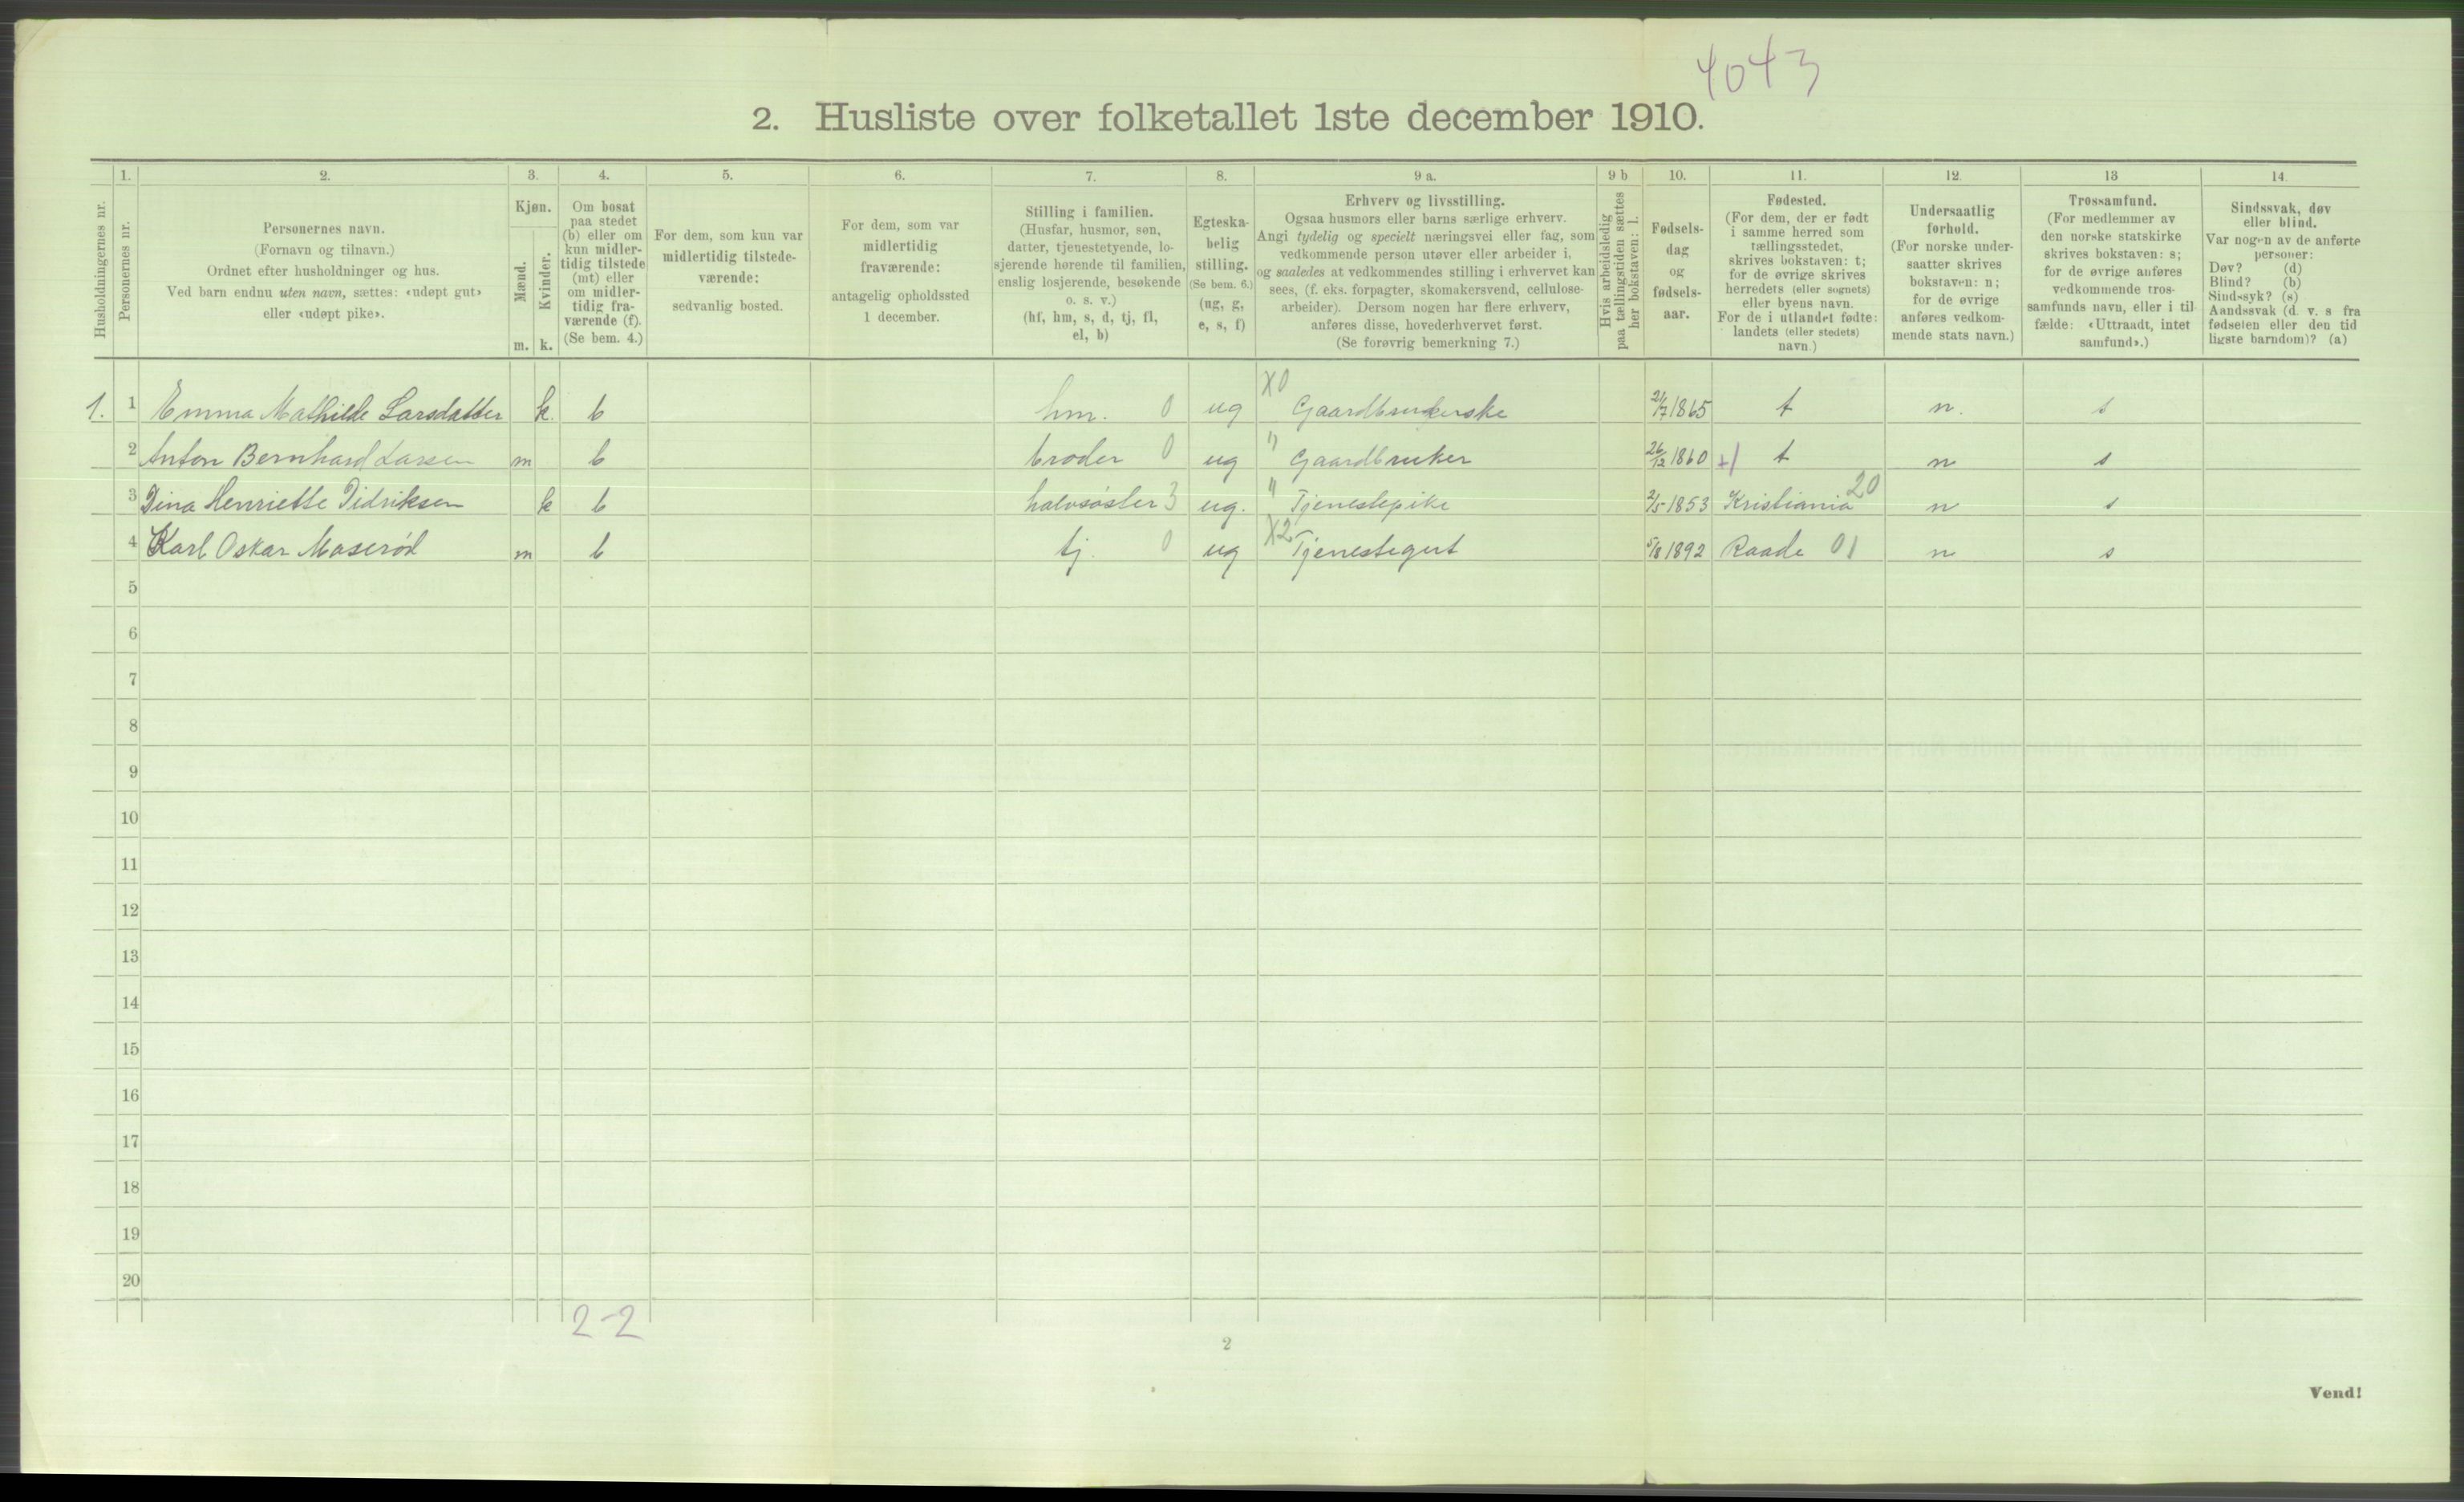 4043
2. Husliste over folketallet 1ste december 1910.
1. 2. 3. 4. 5. 6. 7. 8. 9 a. 9 b 10. 11. 12. 13 14.
Husholdningernes nr.
Personernes nr.
Personernes navn.
(Fornavn og tilnavn.)
Ordnet efter husholdninger og hus.
Ved barn endnu uten navn, sættes: «udøpt gut»
eller «udøpt pike».
Kjøn.
Mænd.
Kvinder.
m. k.
Om bosat
paa stedet
(b) eller om
kun midler-
tidig tilstede
(mt) eller
om midler-
tidig fra-
værende (f).
(Se bem. 4.)
For dem, som kun var
midlertidig tilstede-
værende:
sedvanlig bosted.
For dem, som var
midlertidig
fraværende:
antagelig opholdssted
1 december.
Stilling i familien.
(Husfar, husmor, søn,
datter, tjenestetyende, lo-
sjerende hørende til familien,
enslig losjerende, besøkende
o. s. v.)
(hf, hm, s, d, tj, fl,
el, b)
Egteska-
belig
stilling.
(Se bem. 6.)
(ug, g,
e, s, f)
Erhverv og livsstilling.
Ogsaa husmors eller barns særlige erhverv.
Angi tydelig og specielt næringsvei eller fag, som
vedkommende person utøver eller arbeider i,
og saaledes at vedkommendes stilling i erhvervet kan
sees, (f. eks. forpagter, skomakersvend, cellulose-
arbeider). Dersom nogen har flere erhverv,
anføres disse, hovederhvervet først.
(Se forøvrig bemerkning 7.)
Hvis arbeidsledig
paa tællingstiden sættes
her bokstaven: l.
Fødsels-
dag
og
fødsels-
aar.
Fødested.
(For dem, der er født
i samme herred som
tællingsstedet,
skrives bokstaven: t;
for de øvrige skrives
herredets (eller sognets)
eller byens navn.
For de i utlandet fødte:
landets (eller stedets)
navn.)
Undersaatlig
forhold.
(For norske under-
saatter skrives
bokstaven: n;
for de øvrige
anføres vedkom-
mende stats navn.)
Trossamfund.
(For medlemmer av
den norske statskirke
skrives bokstaven: s;
for de øvrige anføres
vedkommende tros-
samfunds navn, eller i til-
fælde: «Uttraadt, intet
samfund».)
Sindssvak, døv
eller blind.
Var nogen av de anførte
personer:
Døv? (d)
Blind? (b)
Sindssyk? (s)
Aandssvak (d. v. s. fra
fødselen eller den tid
ligste barndom)? (a)
1. 1 Emma Mathilde Larsdatter k. b hm. 0 ug X0 Gaardbrukerske 21/7 1865 t n. s
2 Anton Bernhard Larsen m b broder 0 ug " Gaardbruker 26/12 1860 +1 t n s
3 Dina Henriette Didriksen k b halvsøster 3 ug. " Tjenestepike 2/5 1853 Kristiania 20 n s
4 Karl Oskar Maserød m b tj. 0 ug X2 Tjenestegut 5/8 1892 Raade 01 n s
5
6
7
8
9
10
11
12
13
14
15
16
17
18
19
20
2-2
2
Vend!